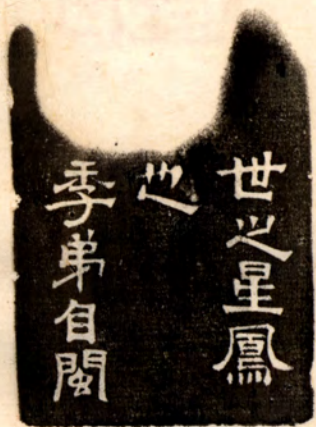 世之星鳳
也
季弟自閩